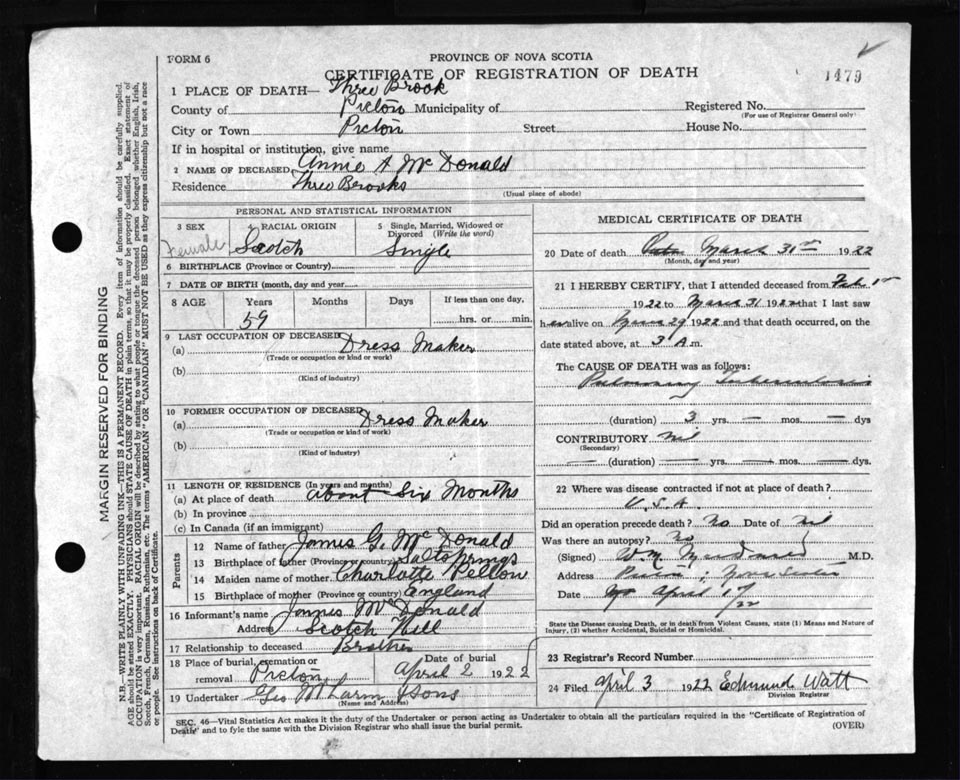 FORM 6
PROVINCE OF NOVA SCOTIA
CERTIFICATE OF REGISTRATION OF DEATH
1479
1 PLACE OF DEATH— Three Brook
County of Pictou Municipality of
Registered No.
(For use of Registrar General only)
City or Town Pictou Street House No.
If in hospital or institution, give name
2 NAME OF DECEASED Annie A McDonald
Residence Three Brooks
(Usual place of abode)
PERSONAL AND STATISTICAL INFORMATION
3 SEX Female
4 RACIAL ORIGIN Scotch
5 Single, Married, Widowed or Divorced (Write the word) Single
6 BIRTHPLACE (Province or Country)
7 DATE OF BIRTH (month, day and year)
8 AGE Years 59 Months Days If less than one day, hrs. or min.
9 LAST OCCUPATION OF DECEASED
(a) Dress Maker
(Trade or occupation or kind of work)
(b)
(Kind of industry)
10 FORMER OCCUPATION OF DECEASED
(a) Dress Maker
(Trade or occupation or kind of work)
(b)
(Kind of industry)
11 LENGTH OF RESIDENCE (In years and months)
(a) At place of death about Six Months
(b) In province
(c) In Canada (if an immigrant)
Parents
12 Name of father James G. McDonald
13 Birthplace of father (Province or country) Saltsprings
14 Maiden name of mother Charlotte Pellow
15 Birthplace of mother (Province or country) England
16 Informant's name James McDonald
Address Scotch Hill
17 Relationship to deceased Brother
18 Place of burial, cremation or removal Pictou Date of burial April 2 1922
19 Undertaker Geo & Sons
(Name and Address)
MEDICAL CERTIFICATE OF DEATH
20 Date of death March 31st 1922
(Month, day and year)
21 I HEREBY CERTIFY, that I attended deceased from Feb 1st
1922 to March 31 1922 that I last saw
her alive on March 29 1922 and that death occurred, on
the date stated above, at 3 A.m.
The CAUSE OF DEATH was as follows:
Pulmonary Tuberculosis
(duration) 3 yrs. — mos. — dys
CONTRIBUTORY nil
(Secondary)
— (duration) — yrs. — mos. — dys.
22 Where was disease contracted if not at place of death?
U.S.A.
Did an operation precede death? No Date of nil
Was there an autopsy? No
(Signed) M.D.
Address Pictou, Nova Scotia
Date April 1st/22
State the Disease causing Death, or in death from Violent Causes, state (1) Means and Nature of Injury, (2) whether Accidental, Suicidal or Homicidal.
23 Registrar's Record Number
24 Filed April 3 1922 Edmund Watt
Division Registrar
SEC. 46—Vital Statistics Act makes it the duty of the Undertaker or person acting as Undertaker to obtain all the particulars required in the "Certificate of Registration of
Death" and to fyle the same with the Division Registrar who shall issue the burial permit.
(OVER)
MARGIN RESERVED FOR BINDING
N.B.—WRITE PLAINLY WITH UNFADING INK—THIS IS A PERMANENT RECORD. Every item of information should be carefully supplied.
AGE should be stated EXACTLY. PHYSICIANS should STATE CAUSE OF DEATH in plain terms, so that it may be properly classified. Exact statement of
OCCUPATION is very important. RACIAL ORIGIN will be described by stating to what people or tongue the deceased person belonged whether English, Irish,
Scotch, French, German, Russian, Ruthenian, etc. The terms "AMERICAN" OR "CANADIAN" MUST NOT BE USED as they express citizenship but not a race
or people. See instructions on back of Certificate.